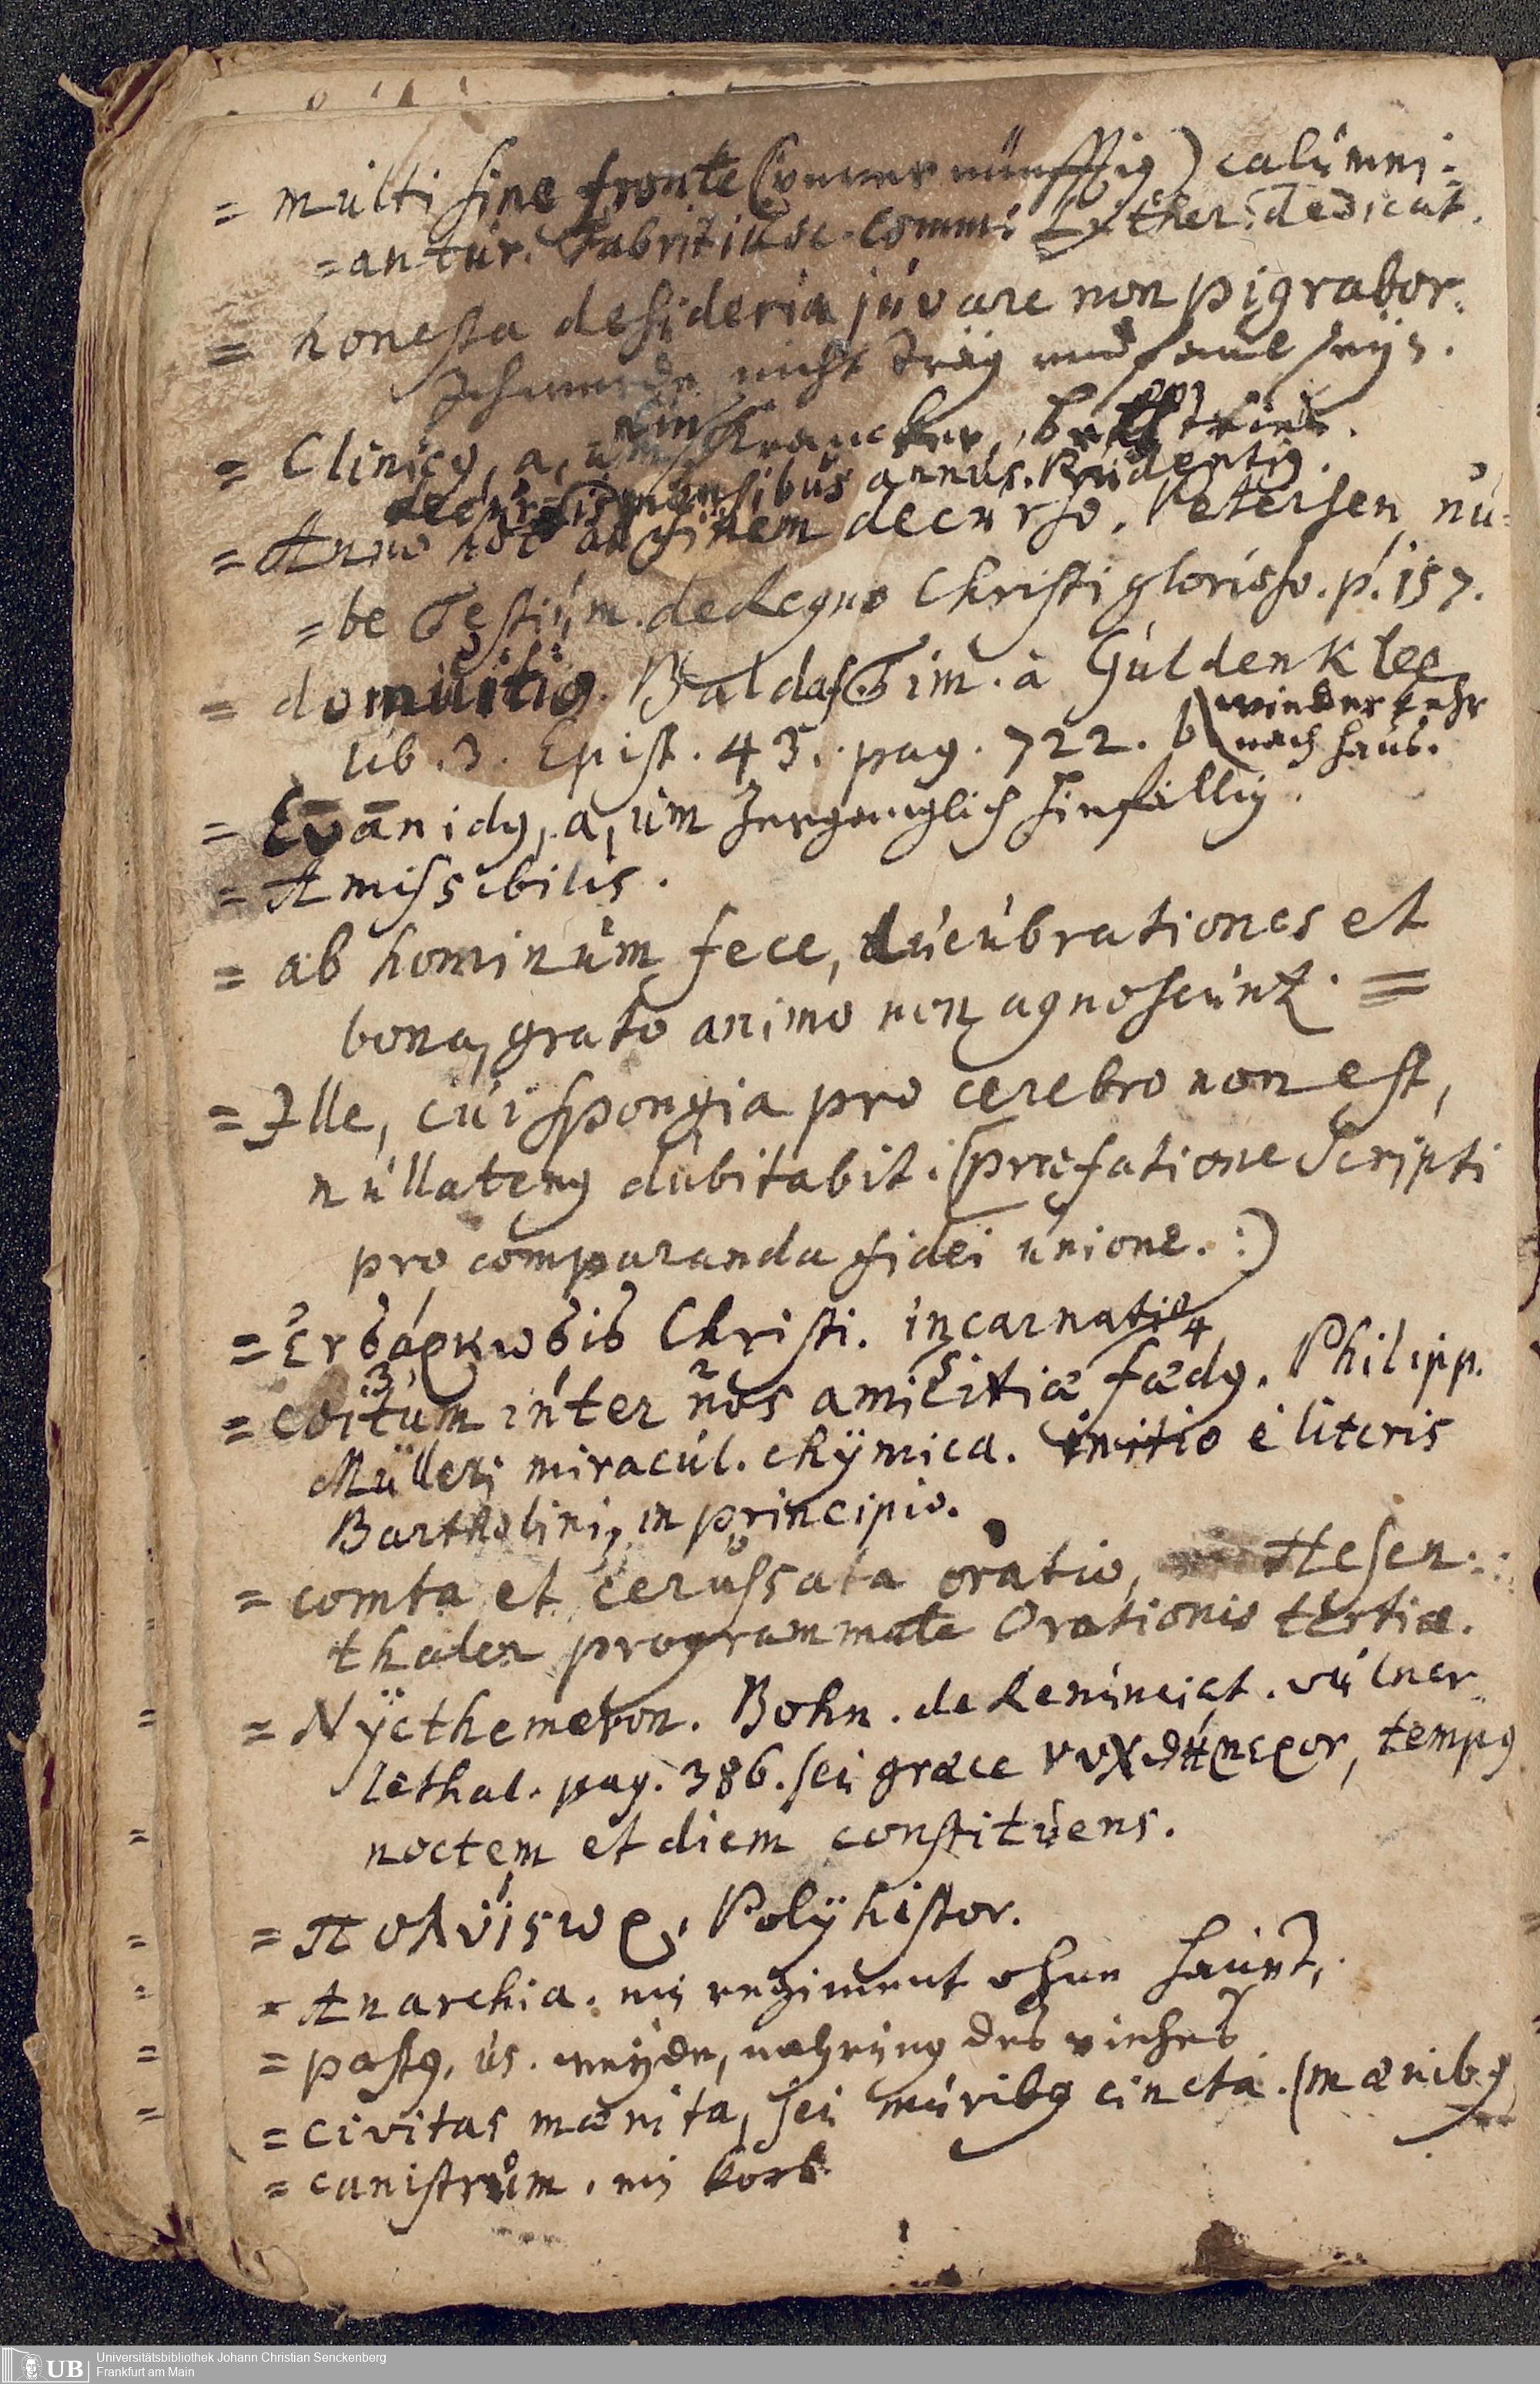 = multi sine fronte (unvernünfftig) calumni=
=antur. Fabritius c. Comm: Luther: dedicat.
= honesta desideria juvare non pigrabor.
Ich werde nicht träg und faul seyn.
= Clinicus, a, um, ein Krancker, bettrieß.
decursis mensibus annus. Prudentius.
= Anno hoc ad finem decurso. Petersen nu=
=be Testium. de Regno Christi glorioso. p. 157.
= domuitio. Baldas. Tim. à Güldenklee
lib. 3. Epist. 43. pag. 722. b (wiederkehr
nach hauß.
= Evanidus, a, um Zergänglich hinfällig.
= Amissibilis.
= ab hominum fece, lucubrationes et
bona, grato animo non agnoscunt. =
= Ille, cui spongia pro cerebro non est,
nullatenus dubitabit. (præfatione Scripti
pro comparanda fidei unione. :)
= Ενσάρκωσις Christi. incarnatio
= coitum inter nos amicitiæ fædus. Philipp.
3 2 5 4
Mülleri miracul. chÿmica. initio é literis
Bartholini, in principio.
= comta et cerussata oratio, Hesen=
thaler programmate Orationis tertiæ.
= Nÿcthemeron. Bohn. de Renunciat. vulner.
lethal. pag. 386. seu græce νυχθήμερον, tempus
noctem et diem constituens.
= Πολυΐϛωρ, Polÿhistor.
= Anarchia. ein regiment ohne haupt,
= pastus, us. weÿde, nahrung des viehes
= civitas mænita, seu muribus cincta. (mænibus
= canistrum. ein korb
Universitätsbibliothek Johann Christian Senckenberg
Frankfurt am Main
UB